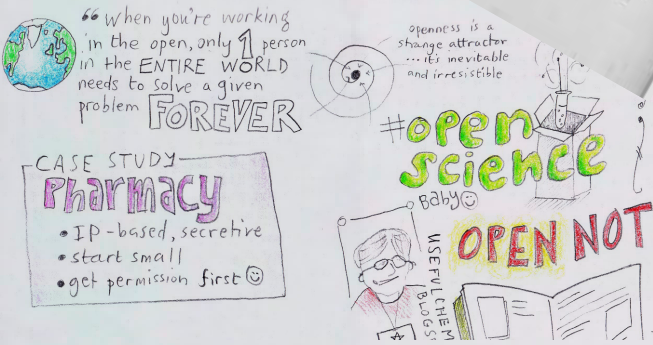 “ When you're working
in the open, only 1 person
in the ENTIRE WORLD
needs to solve a given
problem FOREVER
openness is a
strange attractor
... it's inevitable
and irresistible
#open
science
Baby
CASE STUDY
Pharmacy
• IP-based, secretive
• start small
• get permission first
USEFULCHEM
BLOGS
OPEN NOT